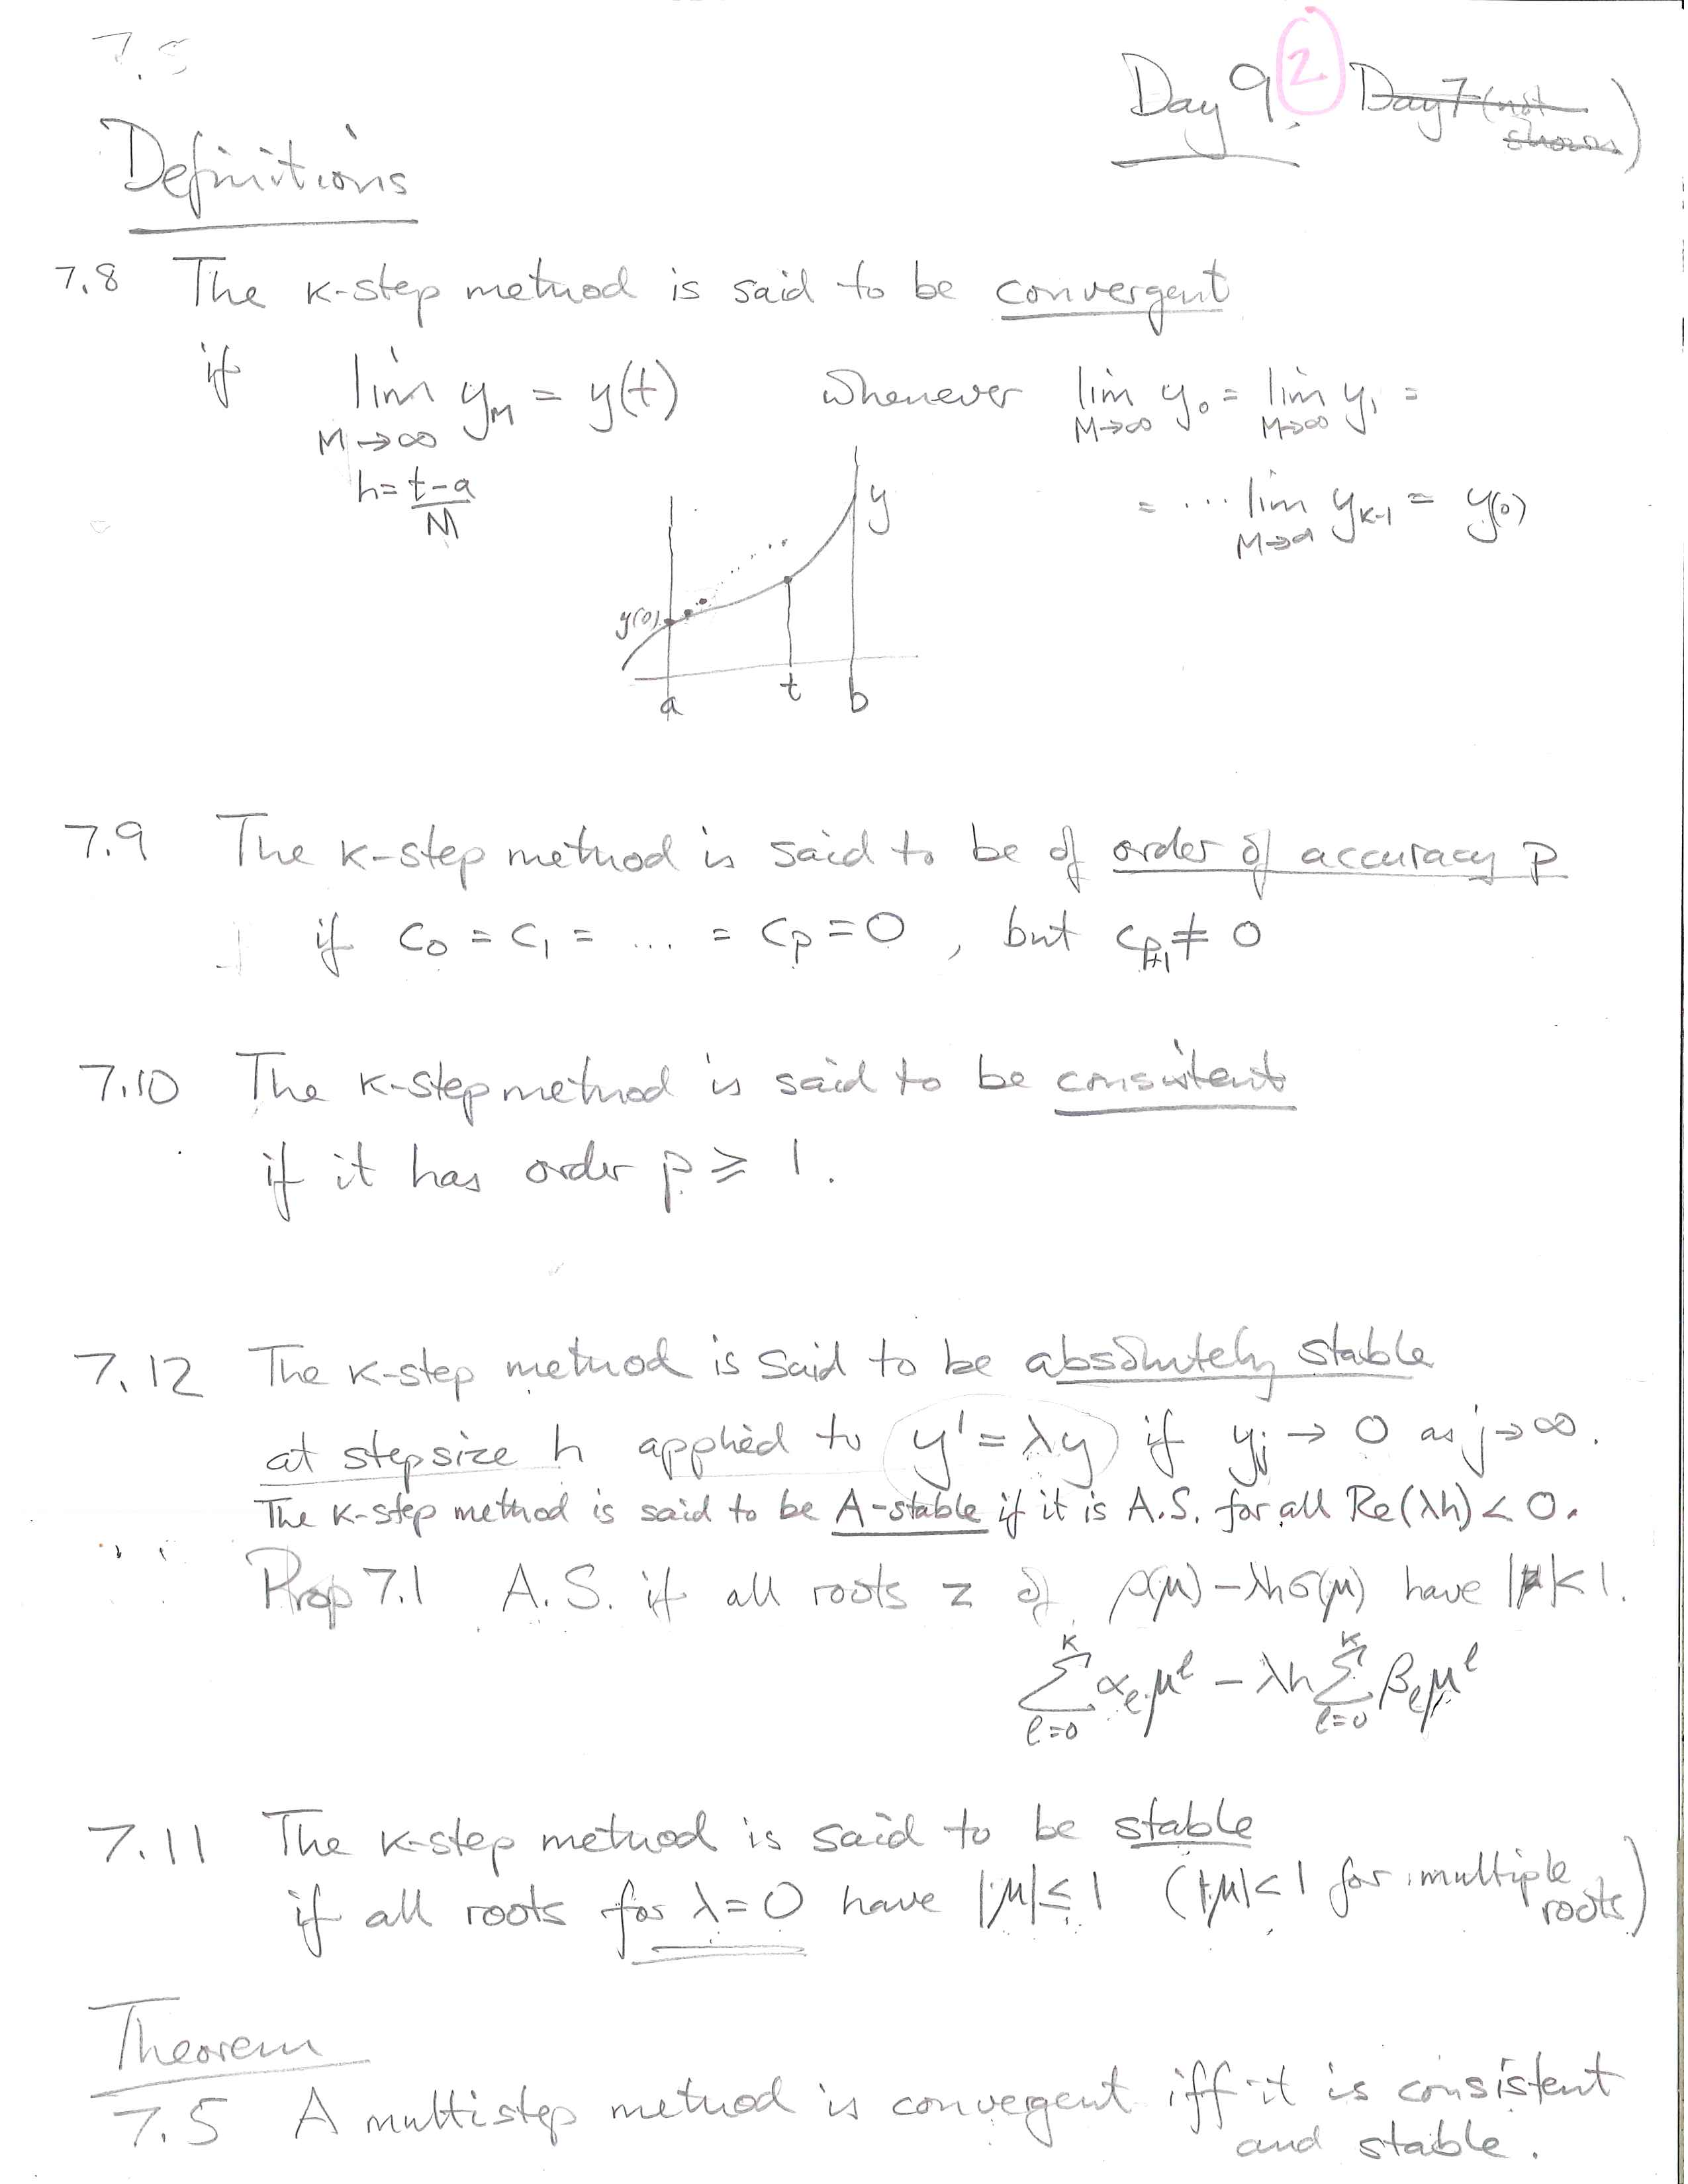 7.5
Day 9. 2 Day 7 (not shown)
Definitions
7.8 The k-step method is said to be convergent
if lim y_M = y(t) whenever lim y_0 = lim y_1 =
M→∞ M→∞ M→∞
h = (t-a)/M = ... lim y_{k-1} = y(0)
M→∞
y
y(0)
a t b
7.9 The k-step method is said to be of order of accuracy p
if c_0 = c_1 = ... = c_p = 0 , but c_{p+1} ≠ 0
7.10 The k-step method is said to be consistent
if it has order p ≥ 1.
7.12 The k-step method is said to be absolutely stable
at stepsize h applied to y' = λy if y_j → 0 as j→∞.
The k-step method is said to be A-stable if it is A.S. for all Re(λh) < 0.
Prop 7.1 A.S. if all roots z of ρ(μ) - λhσ(μ) have |μ|<1.
∑_{l=0}^{k} α_l μ^l - λh ∑_{l=0}^{k} β_l μ^l
7.11 The k-step method is said to be stable
if all roots for λ=0 have |μ| ≤ 1 (|μ|<1 for multiple roots)
Theorem
7.5 A multistep method is convegent iff it is consistent
and stable.